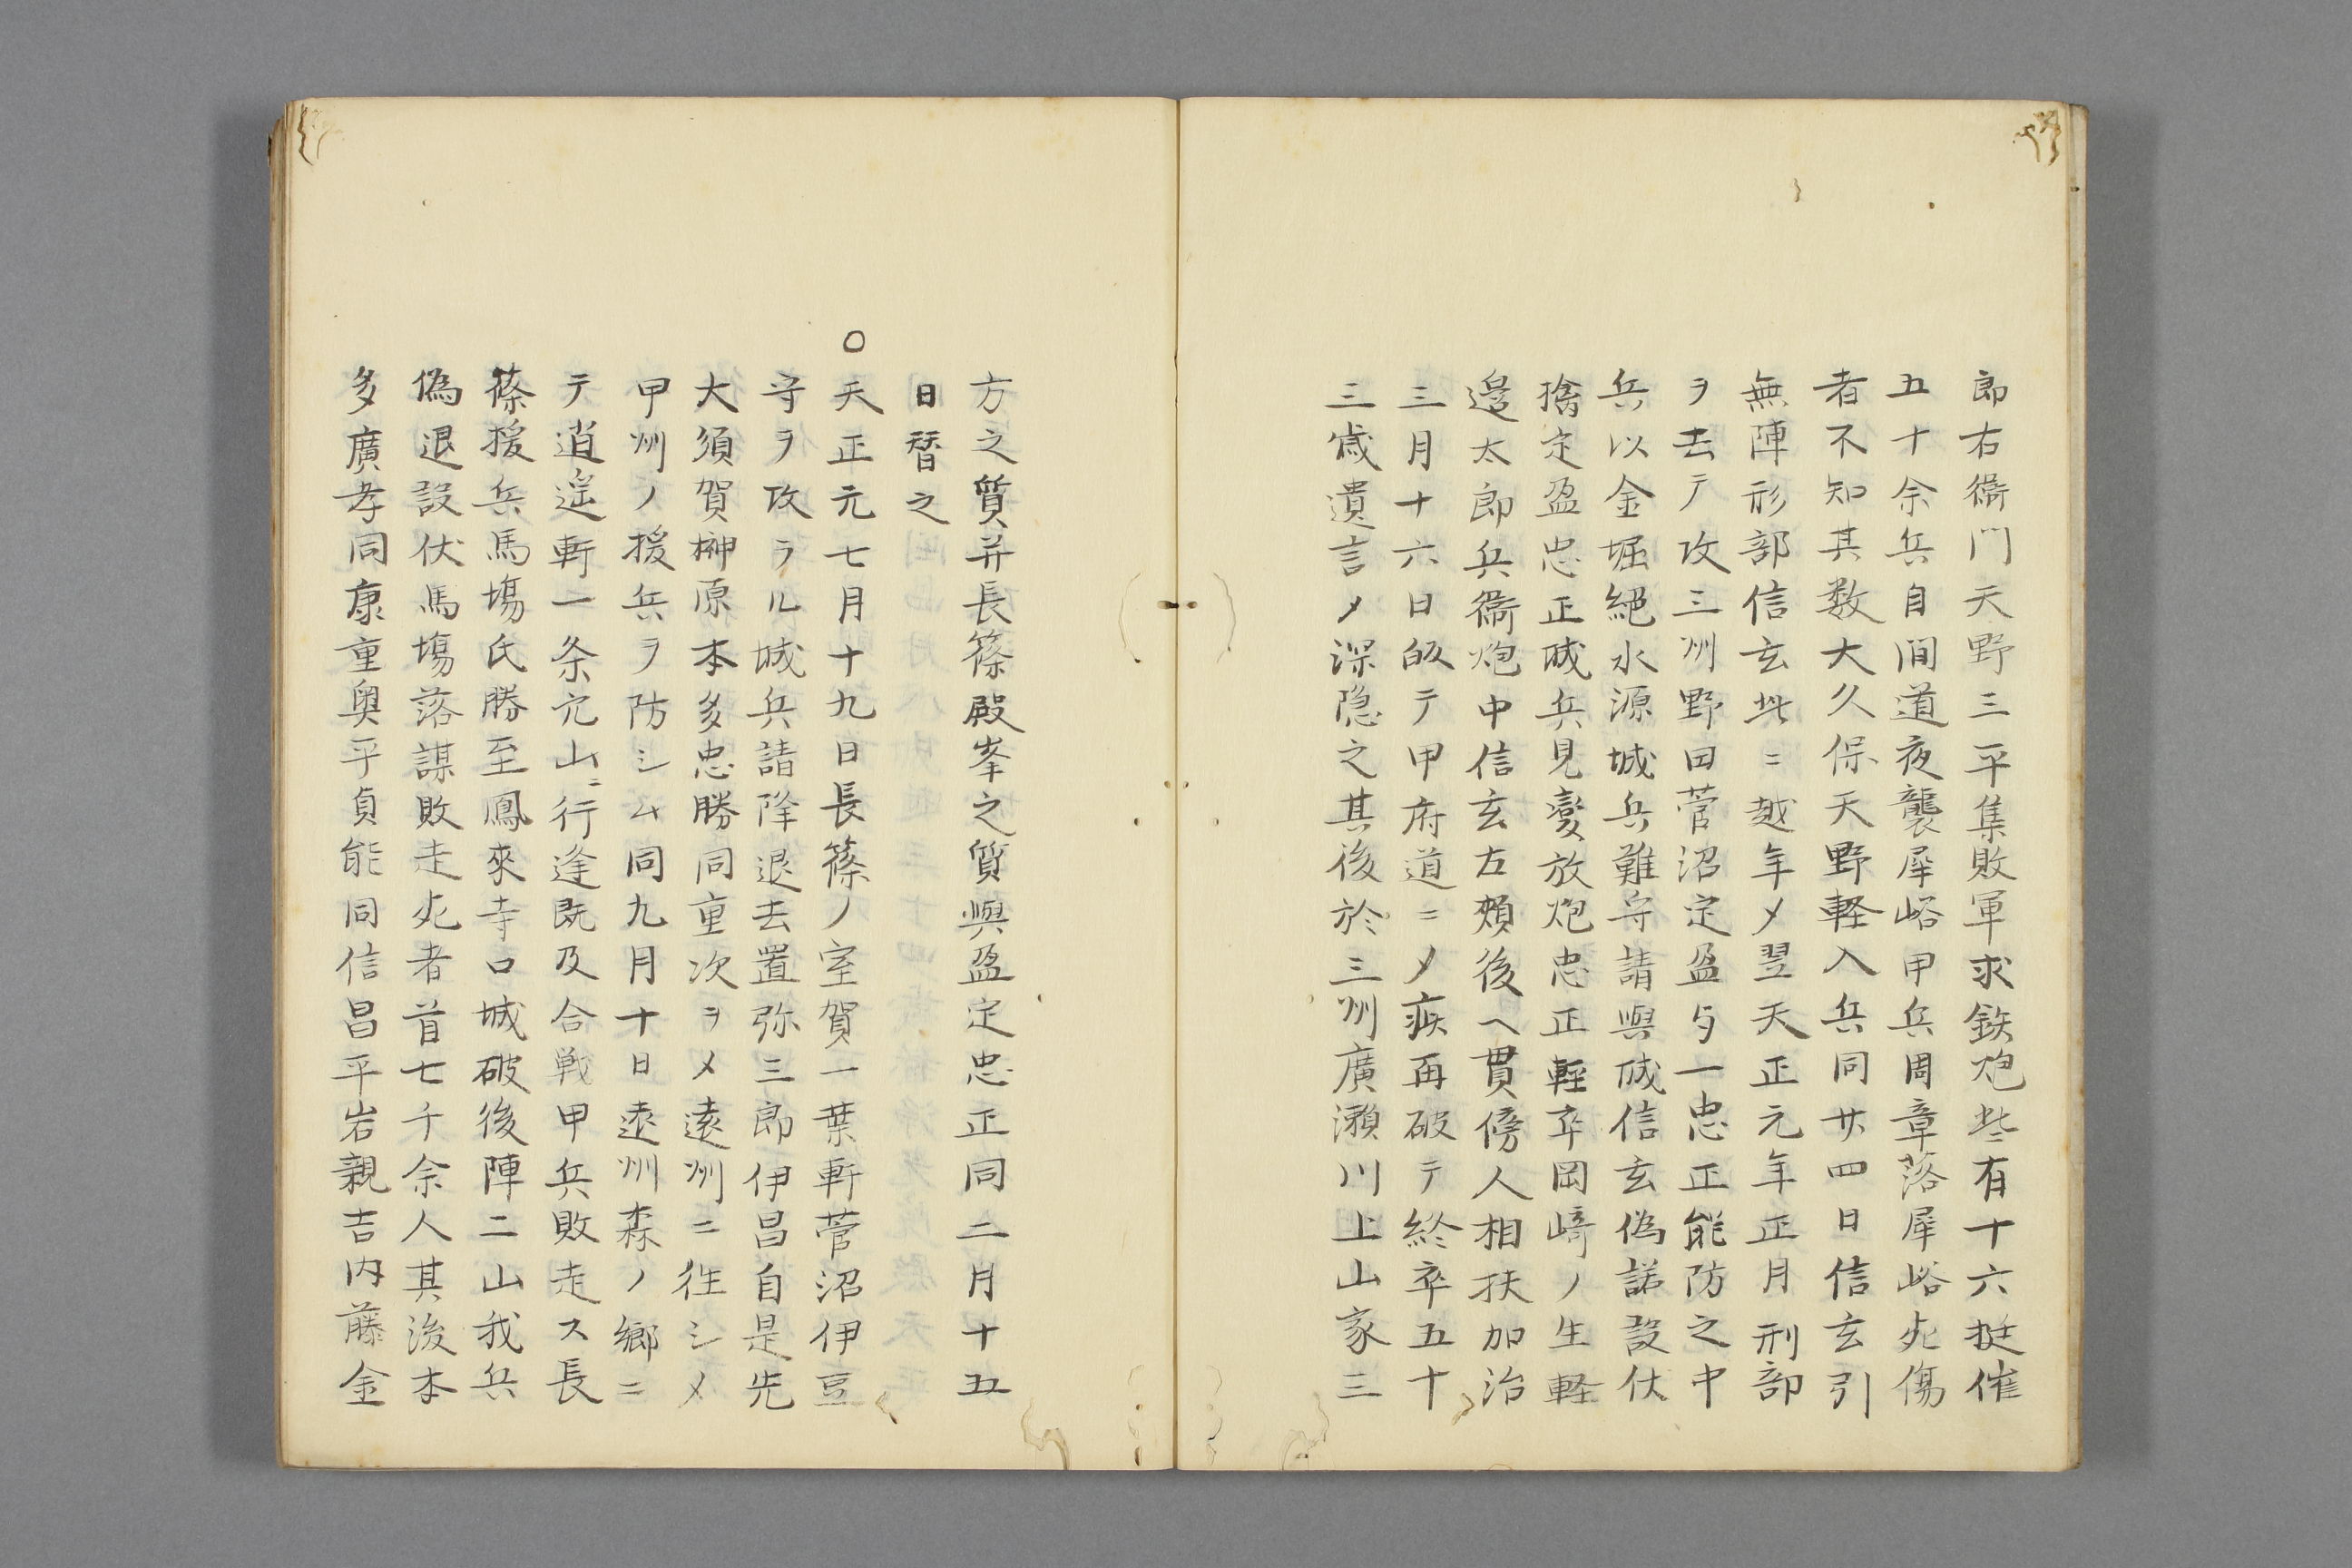 郎右衞門天野三平集敗軍求鉄炮些有十六挺催
五十余兵自間道夜襲犀峪甲兵周章落犀峪死傷
者不知其数大久保天野軽入兵同廿四日信玄引
無陣形部信玄此ニ越年〆翌天正元年正月刑部
ヲ去テ攻三州野田菅沼定盈与一忠正能防之中
兵以金堀絕水源城兵難守請與城信玄偽諾設伏
擒定盈忠正城兵見變放炮忠正輕卒岡﨑ノ生軽
邉太郎兵衞炮中信玄左頬後ヘ貫傍人相扶加治
三月十六日皈テ甲府道ニ〆疾再破テ終卒五十
三歳遺言〆深隠之其後於三州廣瀬川上山家三
方之質并長篠殿峯之質與盈定忠正同二月十五
日替之
○天正元七月十九日長篠ノ室賀一葉軒菅沼伊豆
守ヲ攻ラル城兵請降退去置弥三郎伊昌自是先
大須賀榊原本多忠勝同重次ヲ〆遠州ニ徃シ〆
甲州ノ援兵ヲ防シム同九月十日遠州森ノ郷ニ
テ逍遥軒一条穴山ニ行逢既及合戦甲兵敗走ス長
篠援兵馬場氏勝至鳳來寺口城破後陣二山我兵
偽退設伏馬場落謀敗走死者首七千余人其後本
多廣孝同康重奥平貞能同信昌平岩親吉内藤金